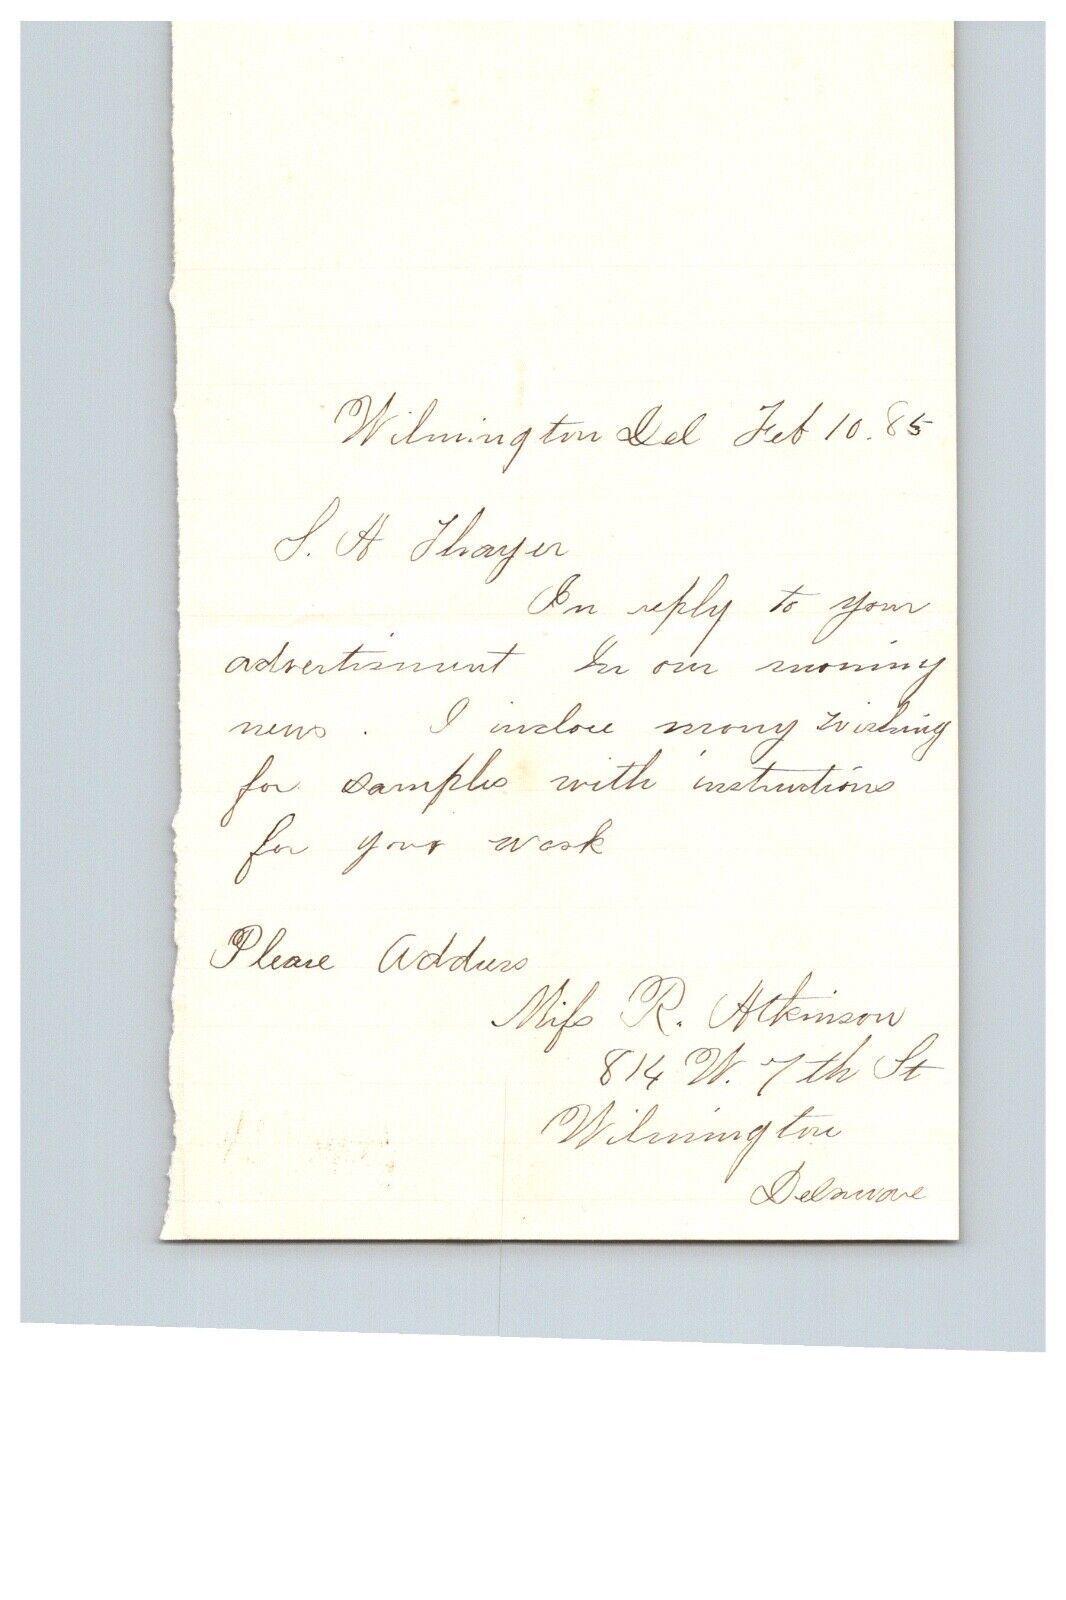 Wilmington Del Feb 10. 85
S. H Thayer
In reply to your
advertisment In our morning
news. I inclose mony wishing
for samples with instructions
for your work
Please Address
Miſs R. Atkinson
814 W. 7th St
Wilmington
Delaware